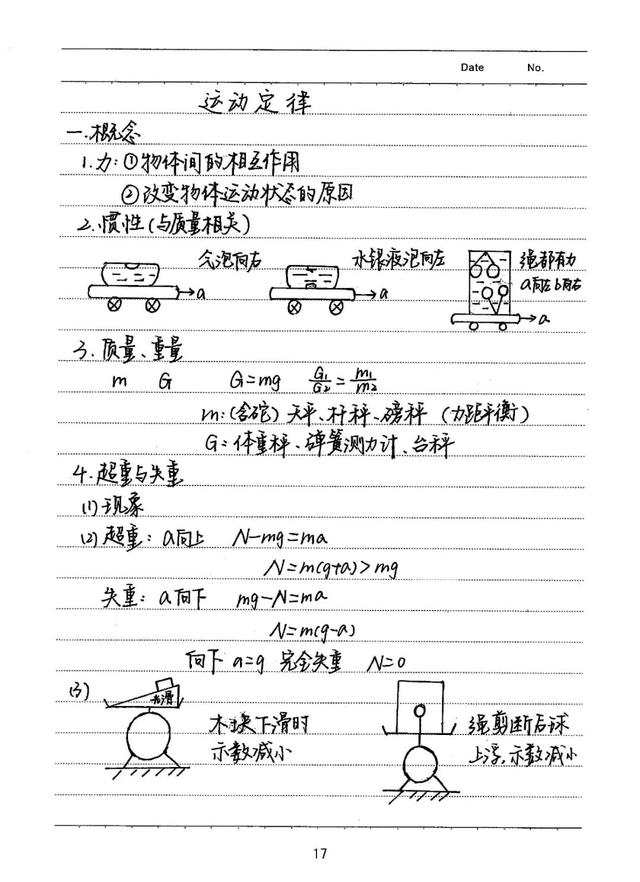 Date No.
运动定律
一.概念
1.力:①物体间的相互作用
②改变物体运动状态的原因
2.惯性(与质量相关)
气泡向右 水银液泡向左 绳都有力
a向左 b向右
a a a
3.质量、重量
m G G=mg G1/G2=m1/m2
m:(含砣)天平、杆秤、磅秤(力距平衡)
G:体重秤、弹簧测力计、台秤
4.超重与失重
(1)现象
(2)超重:a向上 N-mg=ma
N=m(g+a)>mg
失重:a向下 mg-N=ma
N=m(g-a)
向下a=g 完全失重 N=0
(3) 光滑 木块下滑时 绳剪断后球
示数减小 上浮,示数减小
17